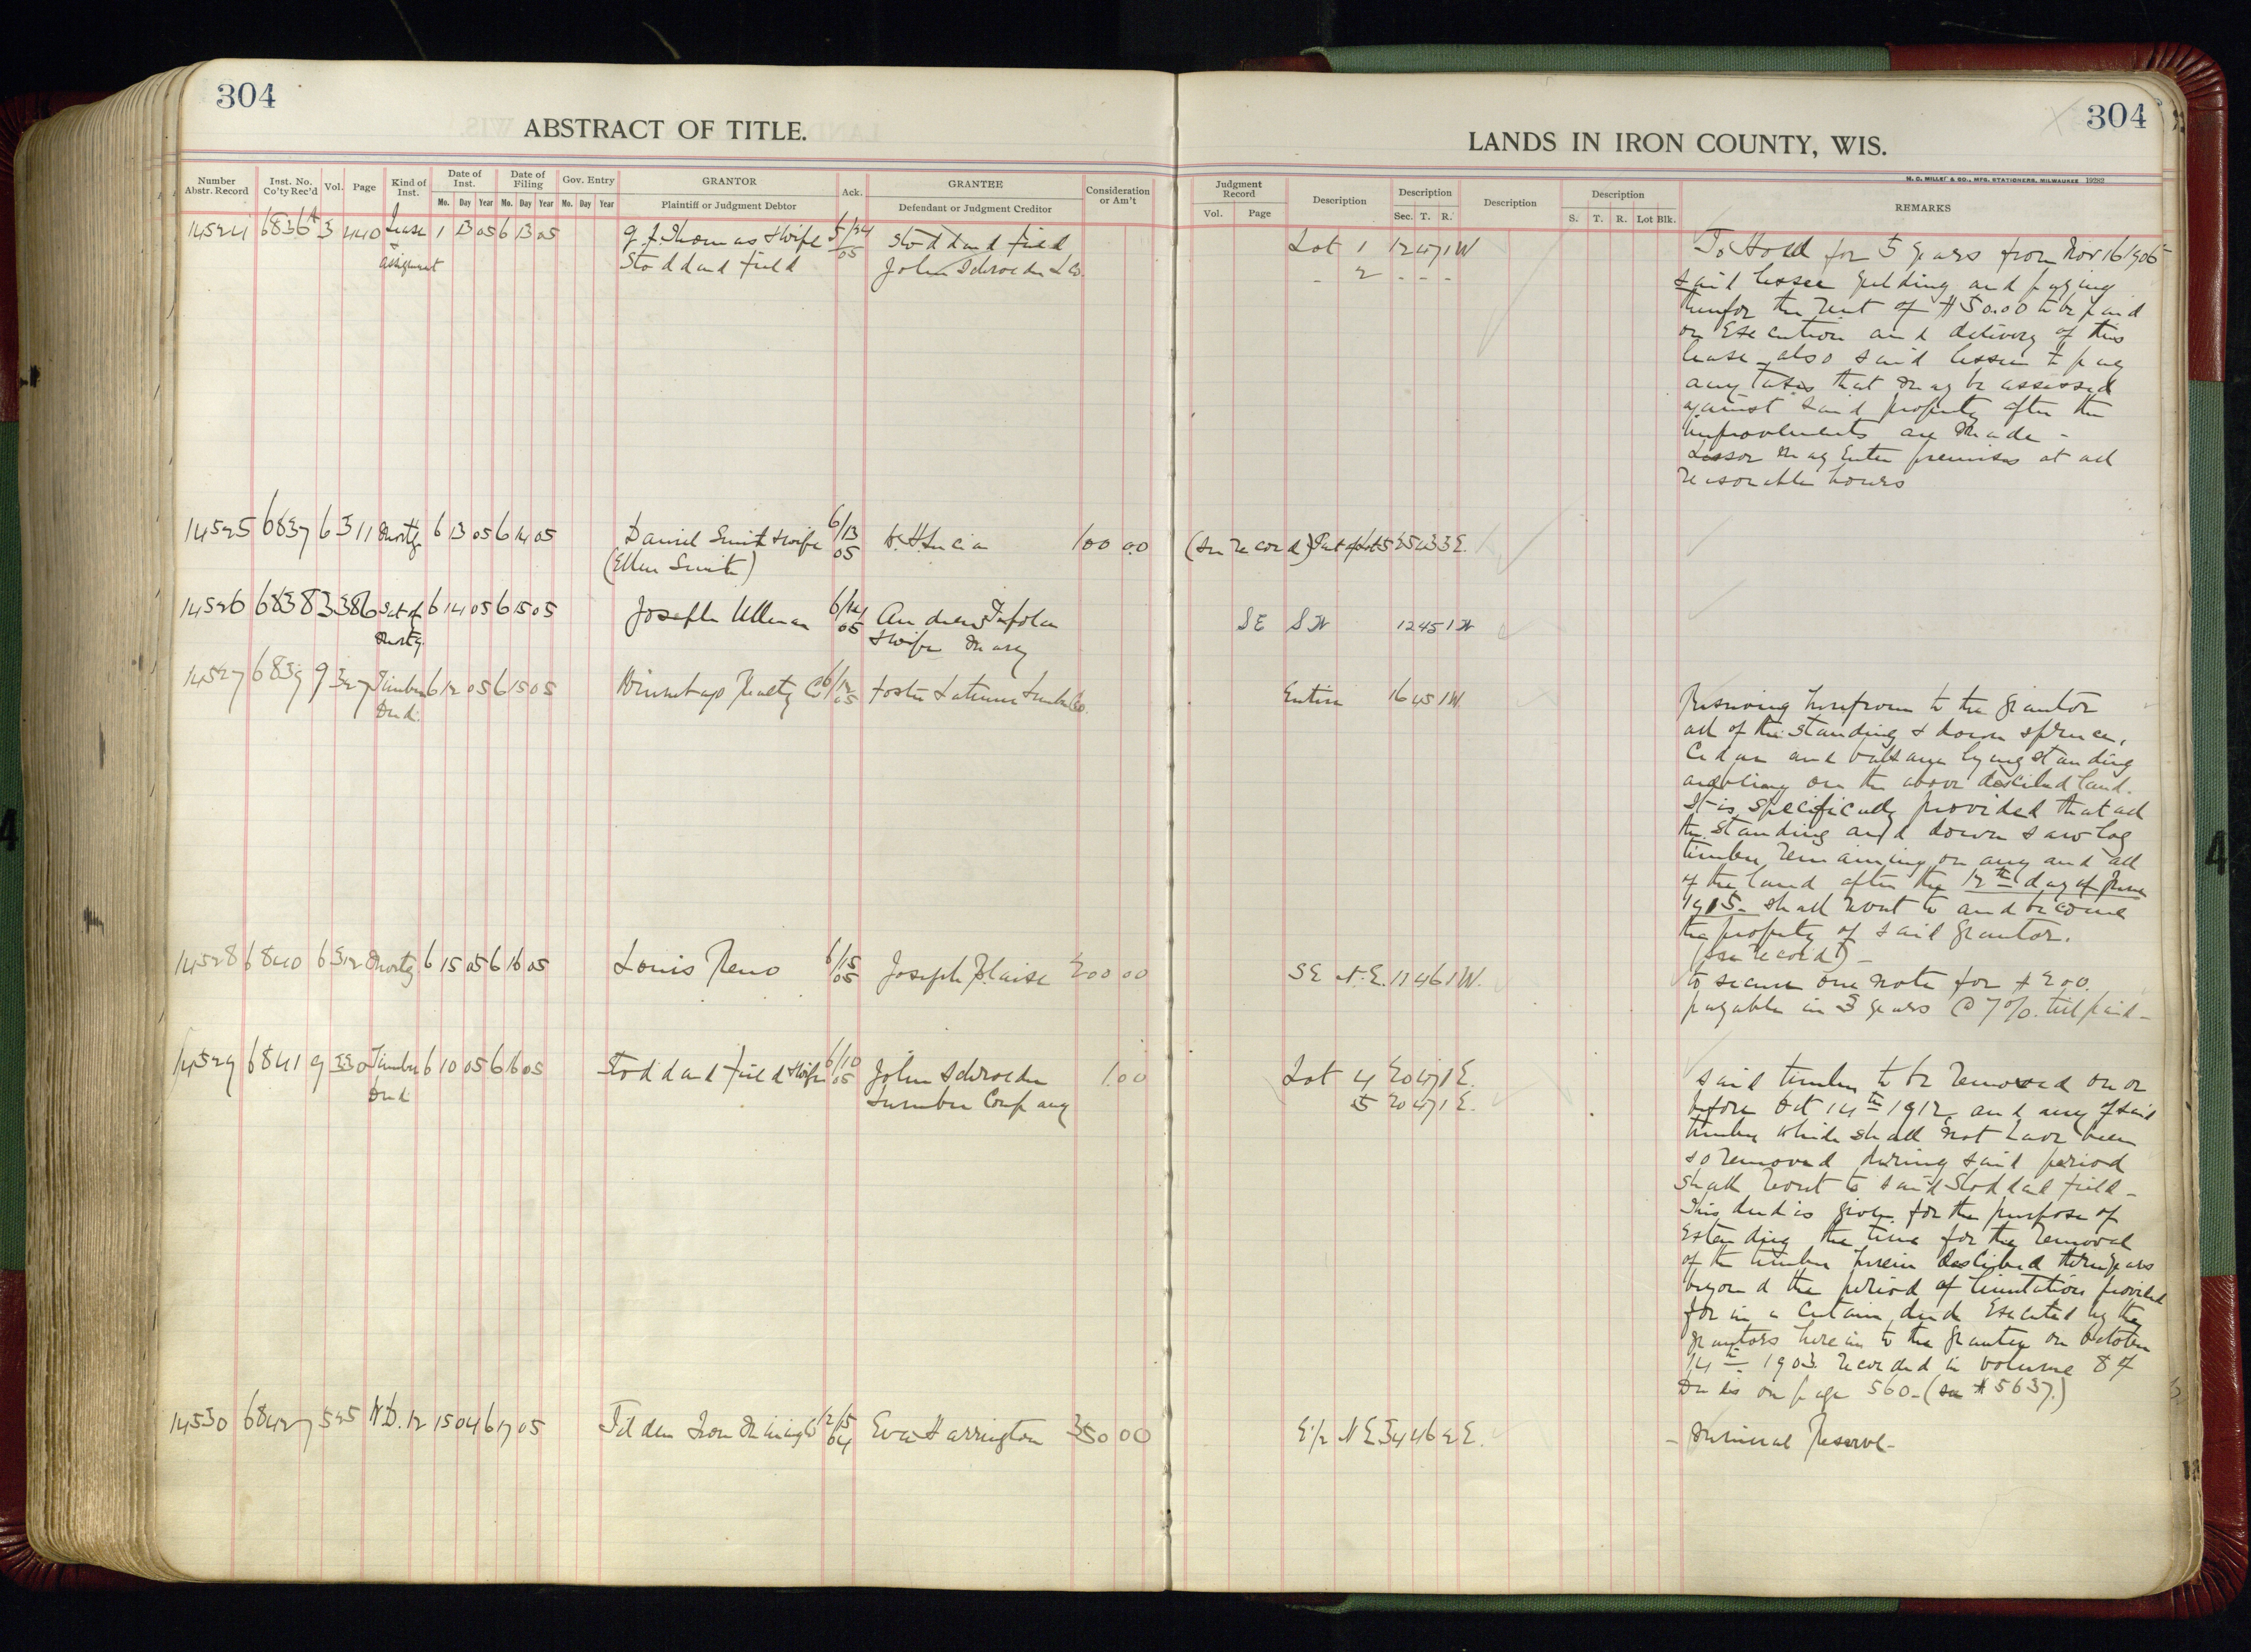 304
ABSTRACT OF TITLE.
Number Abstr. Record
Inst. No. Co'ty Rec'd
Vol.
Page
Kind of Inst.
Date of Inst.
Mo. Day Year
Date of Filing
Mo. Day Year
Gov. Entry
Mo. Day Year
GRANTOR
Plaintiff or Judgment Debtor
Ack.
GRANTEE
Defendant or Judgment Creditor
Consideration or Am't
14524 6836A 3 440 Lease 1 13 05 6 13 05 J. Thomas & wife 5/24 Stoddard Field
& assignment Stoddard Field 05 John Schroeder L Co.
14525 6837 6 311 Mortg 6 13 05 6 14 05 Daniel Smith & wife 6/13 05 100 00
(Ellen Smith)
14526 6838 3 386 Sat of 6 14 05 6 15 05 Joseph Ullman 6/14 05 Andrew
Mortg. & wife Mary
14527 6839 9 327 Timber 6 12 05 6 15 05 Winnebago Realty Co 6/12 05 Foster Latimer Lumber Co.
Deed.
14528 6840 6 312 Mortg 6 15 05 6 16 05 Louis Reno 6/15 05 Joseph Blaise 200 00
14529 6841 9 330 Timber 6 10 05 6 16 05 Stoddard Field & wife 6/10 05 John Schroeder 1 00
Deed. Lumber Company
14530 6842 7 525 W.D. 12 15 04 6 17 05 Tilden Iron Mining Co 12/15 04 Eva Harrington 350 00
304
LANDS IN IRON COUNTY, WIS.
H. C. MILLER & CO., MFG. STATIONERS, MILWAUKEE 19283
Judgment Record
Vol. Page
Description
Description
Sec. T. R.
Description
Description
S. T. R. Lot Blk.
REMARKS
Lot 1 12 47 1W
- 2 - - -
To Hold for 5 years from Nov 16 1905
said lessee yielding and paying
therefor the rent of $50.00 to be paid
on Execution and delivery of this
lease also said lessee to pay
any taxes that may be assessed
against said property after the
improvements are made -
Lessor may Enter premises at all
reasonable hours
(See record) Part of Lot 5 25 43 3E.
SE SW 12 45 1W
Entire 16 45 1W.
Reserving herefrom to the grantor
all of the standing & down spruce,
Cedar and balsam lying standing
and being on the above described land.
It is specifically provided that all
the standing and down saw log
timber remaining on any and all
of the land after the 12th day of June
1915 - shall revert to and become
the property of said Grantor.
(see record) -
SE N.E. 11 46 1W.
to secure one note for $200.
payable in 3 years @ 7%. till paid -
Lot 4 20 47 1E.
5 20 47 1E.
said timber to be removed on or
before Oct 14th 1912 and any of said
timber which shall not have been
so removed during said period
shall revert to said Stoddard Field -
This deed is given for the purpose of
Extending the time for the removal
of the timber herein described three years
beyond the period of limitation provided
for in a certain deed Executed by the
grantors herein to the grantee on October
14th 1903. recorded in volume 8 of
Deeds on page 560 - (see # 5637.)
E 1/2 NE 34 46 2E.
- Mineral Reserve -